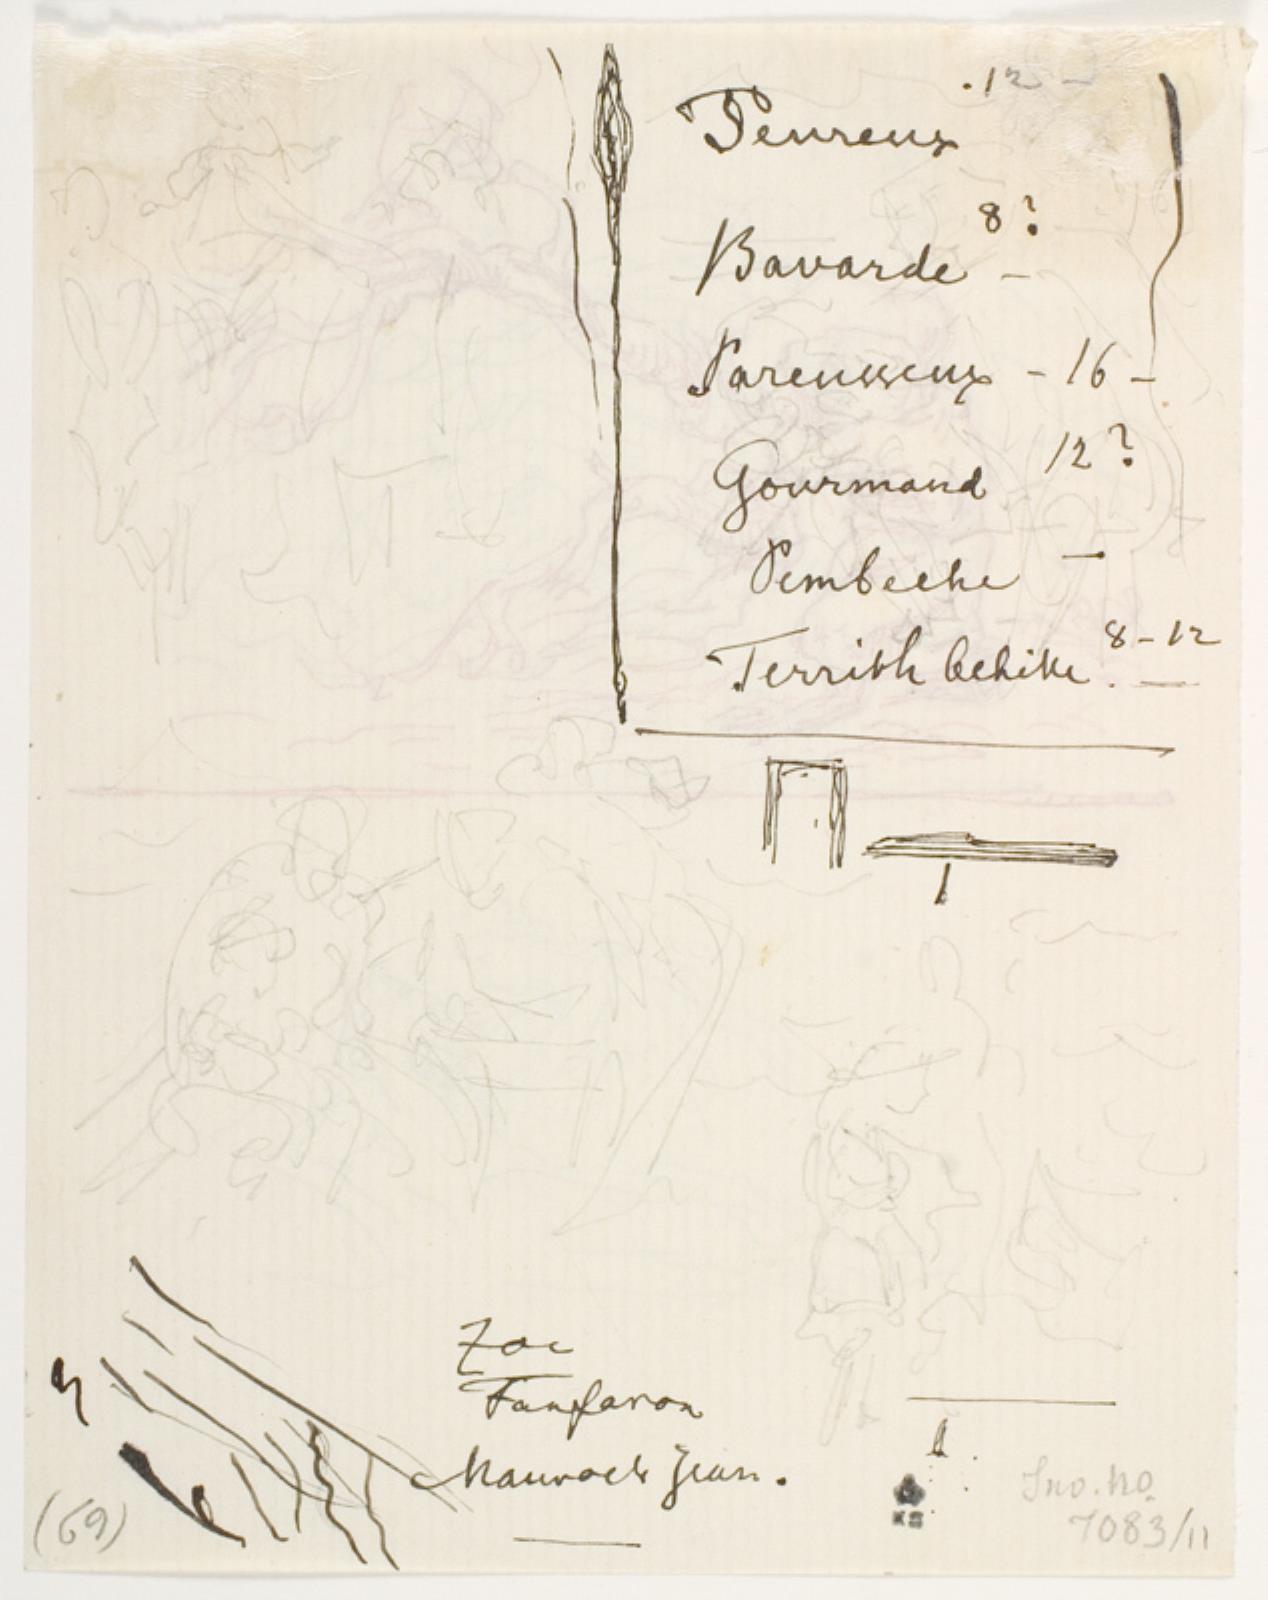 . 12 -
Peureux
8 ?
Bavarde -
Pareusseux - 16 -
12 ?
Gourmand
Pembeche -
8 - 12
Terrible
Zoe
Fanfaron
Jean.
(69)
KS
Inv. no.
7083/11